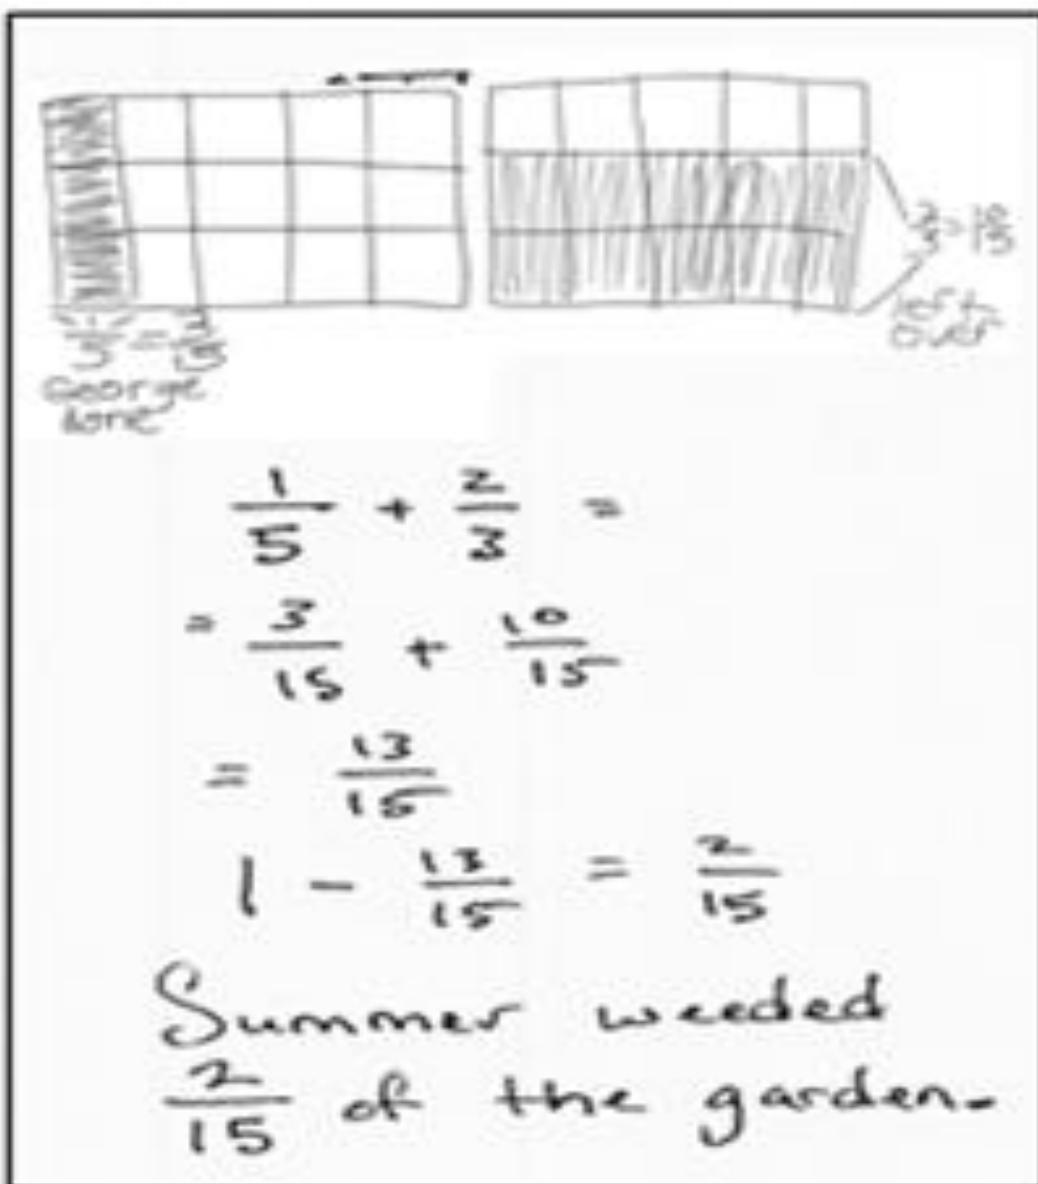 1/5 = 3/15
George
done
2/3 = 10/15
left
over
1/5 + 2/3 =
= 3/15 + 10/15
= 13/15
1 - 13/15 = 2/15
Summer weeded
2/15 of the garden.